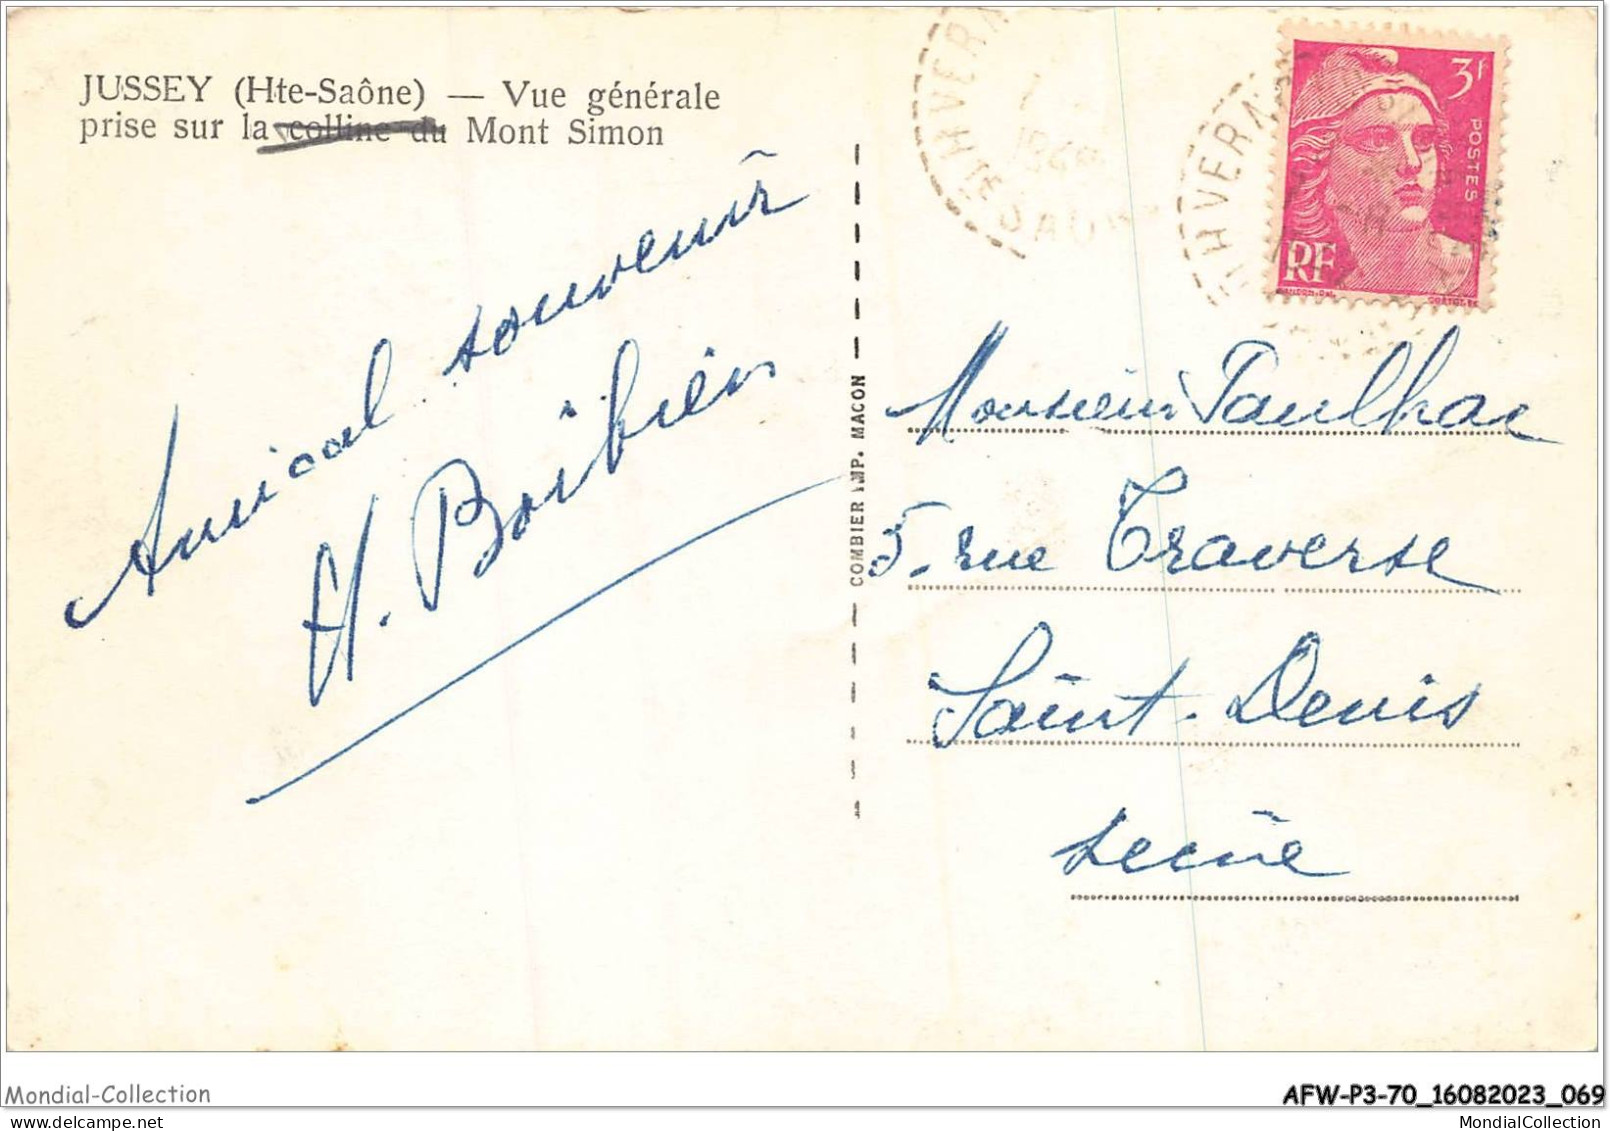 JUSSEY (Hte-Saône) — Vue générale
prise sur la colline du Mont Simon
Amical souvenir
H.
COMBIER IMP. MACON
3f
POSTES
RF
Monsieur Paulhac
5, rue Traverse
Saint-Denis
Seine
Mondial-Collection
AFW-P3-70_16082023_069
MondialCollection